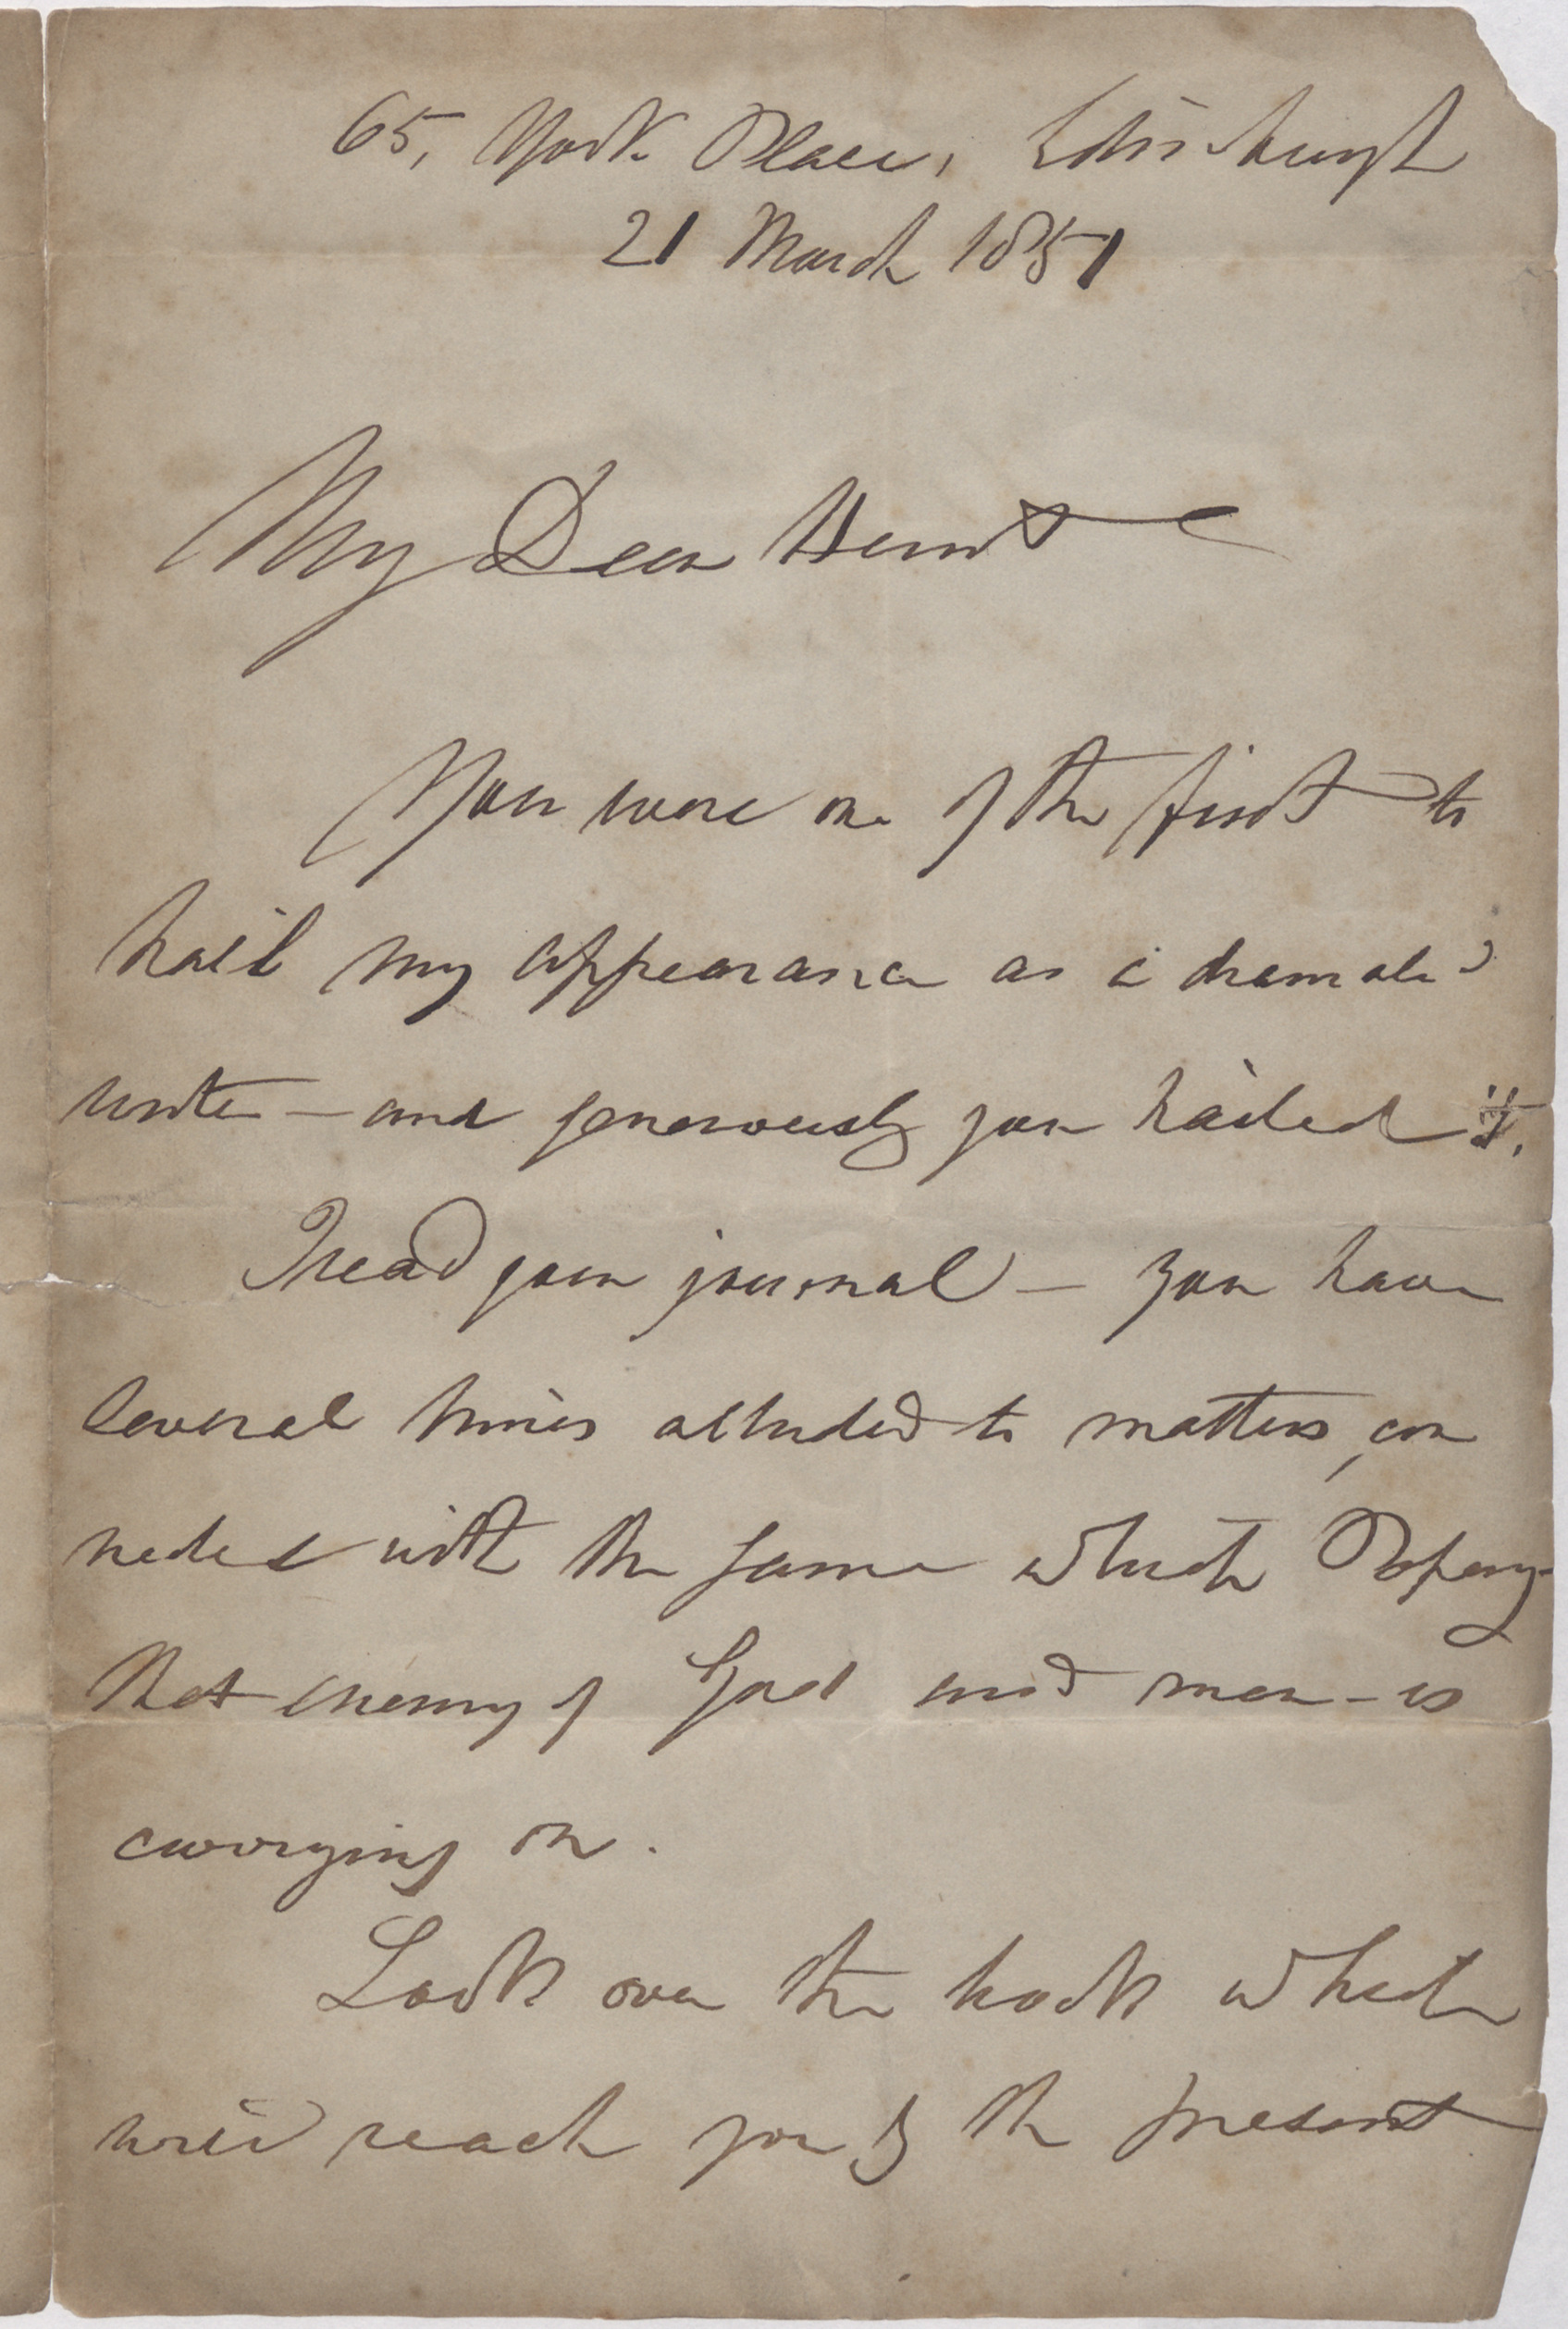 65, York Place, Edinburgh
21 March 1851
My Dear Hunt
You were one of the first to
hail my appearance as a dramatic
writer — and generously you hailed it.
I read your journal — you have
several times alluded to matters con
nected with the game which Popery
that enemy of God and man — is
carrying on.
Look over the book which
will reach you by the present